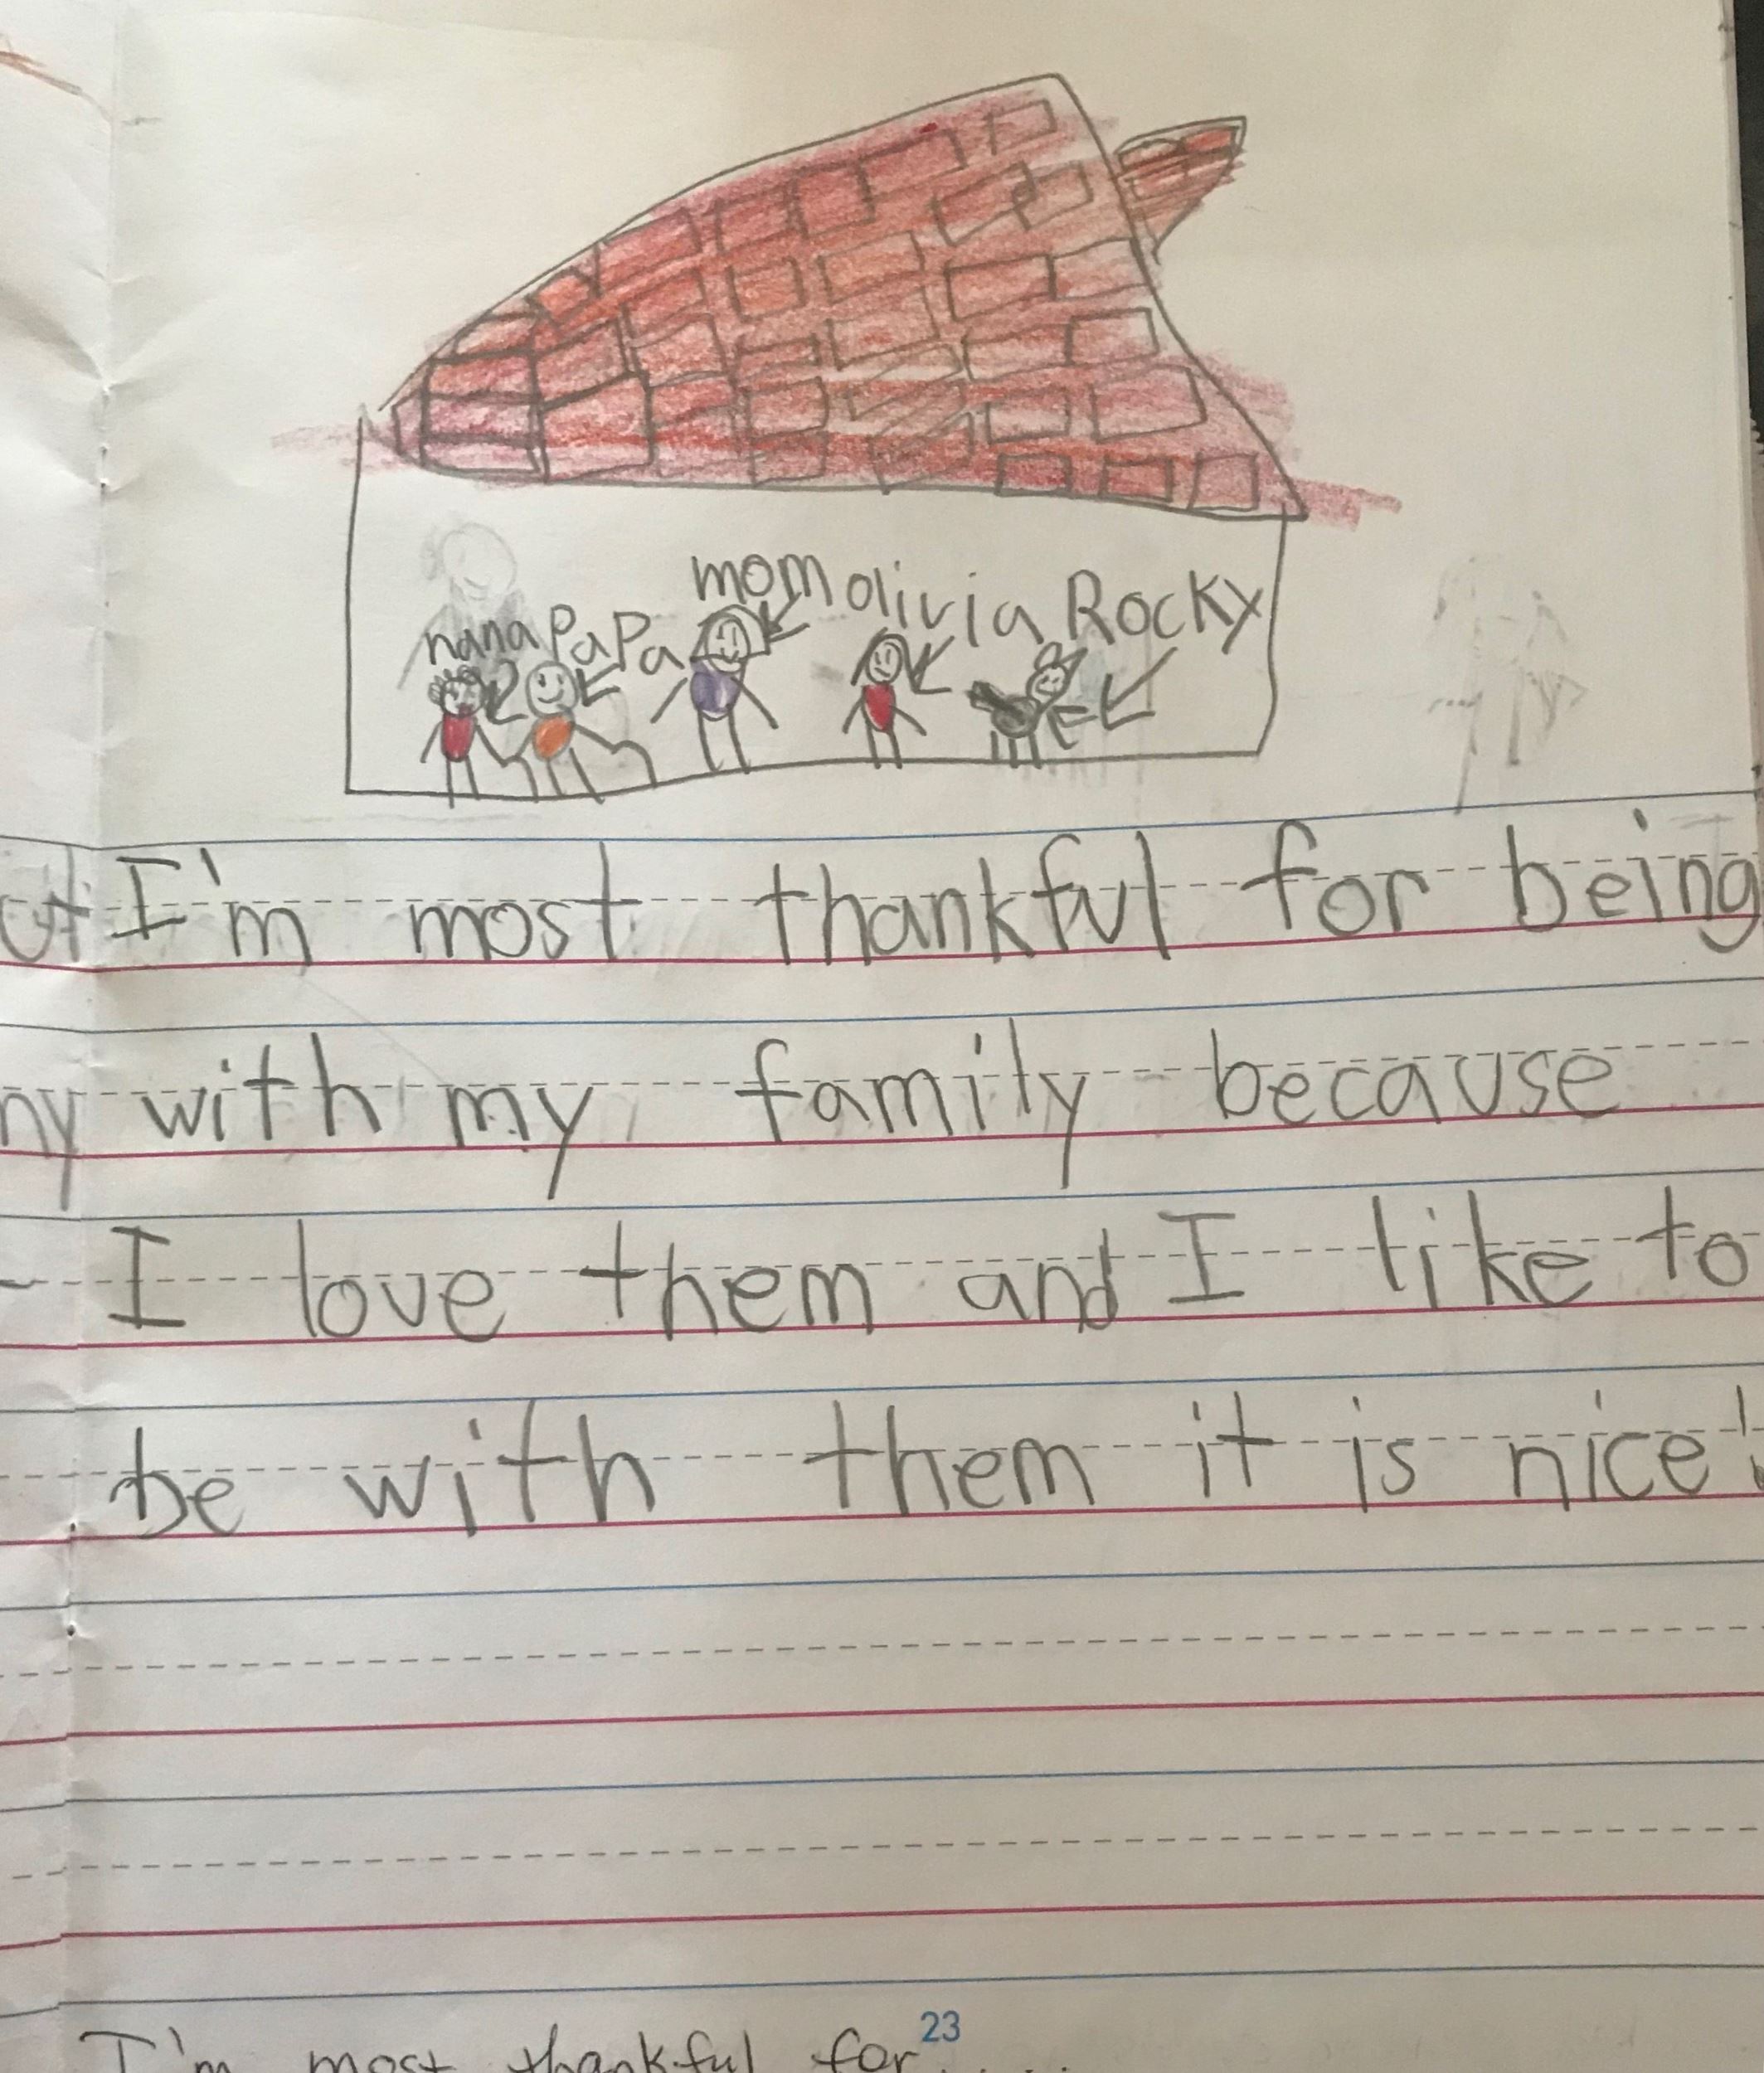 mom olivia Rocky
nana PaPa
I'm most thankful for being
ny with my family because
I love them and I like to
be with them it is nice!
23
I'm most thankful for....